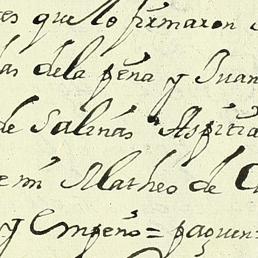 es que lo firmaron
as dela peña y Juan
de Salinas Aspitia
e mi Matheo de
y Empeño = paguen